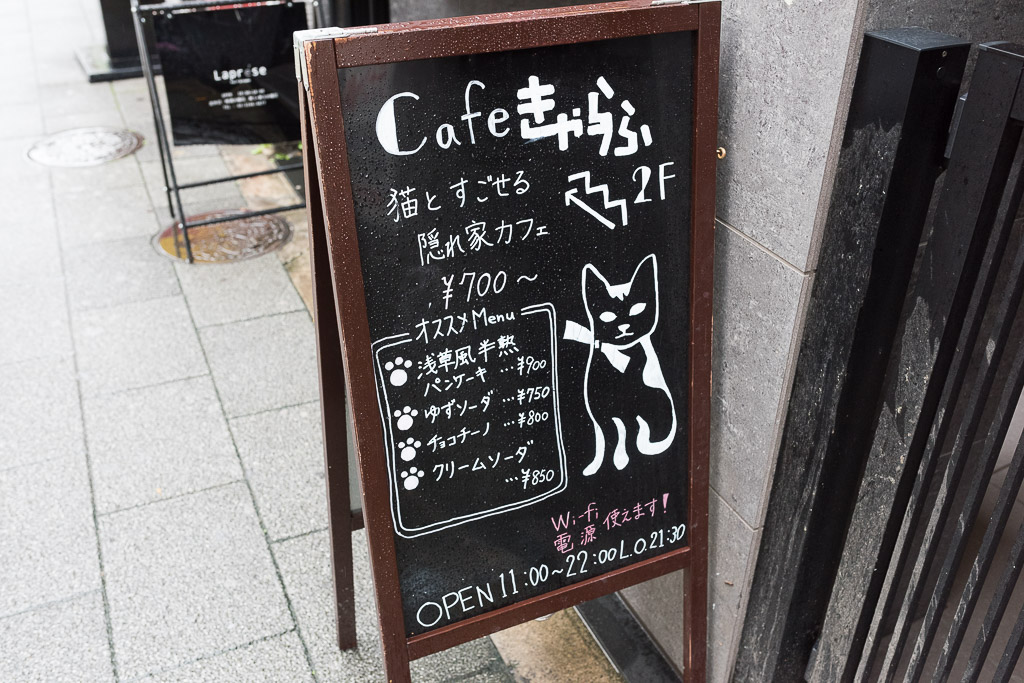 Laprése
Cafeきゃらふ
2F
猫とすごせる
隠れ家カフェ
¥700～
オススメMenu
浅草風半熟
パンケーキ …¥900
ゆずソーダ …¥750
チョコチーノ …¥800
クリームソーダ
…¥850
Wi-fi
電源 使えます!
OPEN 11:00～22:00 L.O.21:30